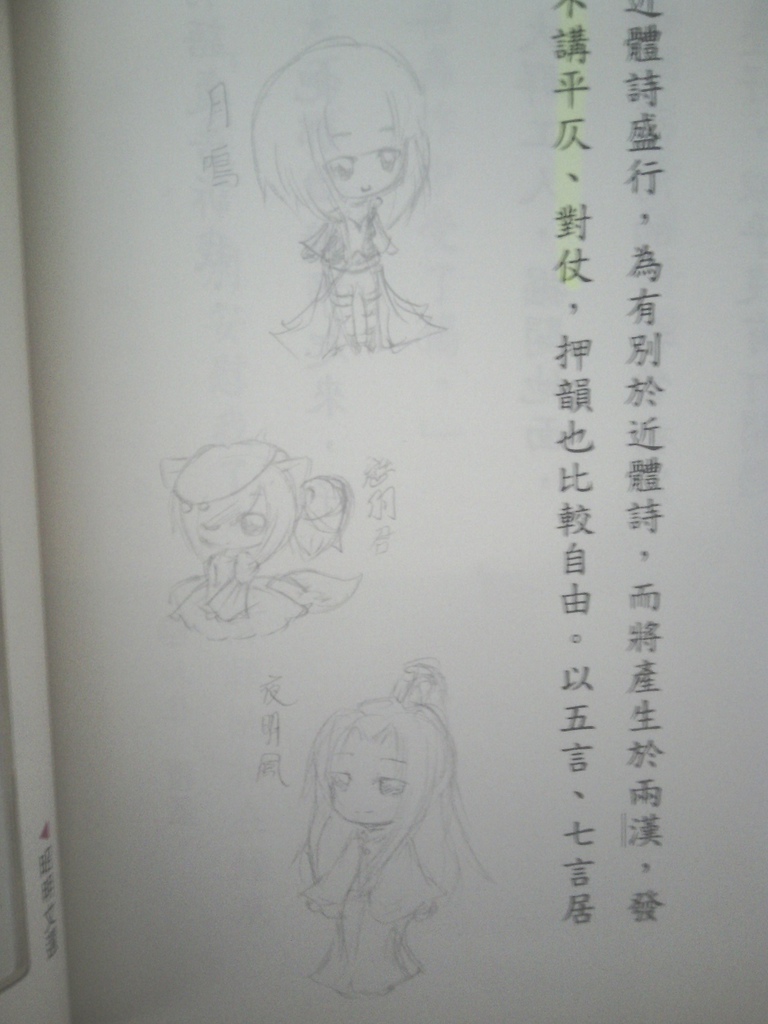 近體詩盛行，為有別於近體詩，而將產生於兩漢，發
不講平仄、對仗，押韻也比較自由。以五言、七言居
月鳴
夜明風